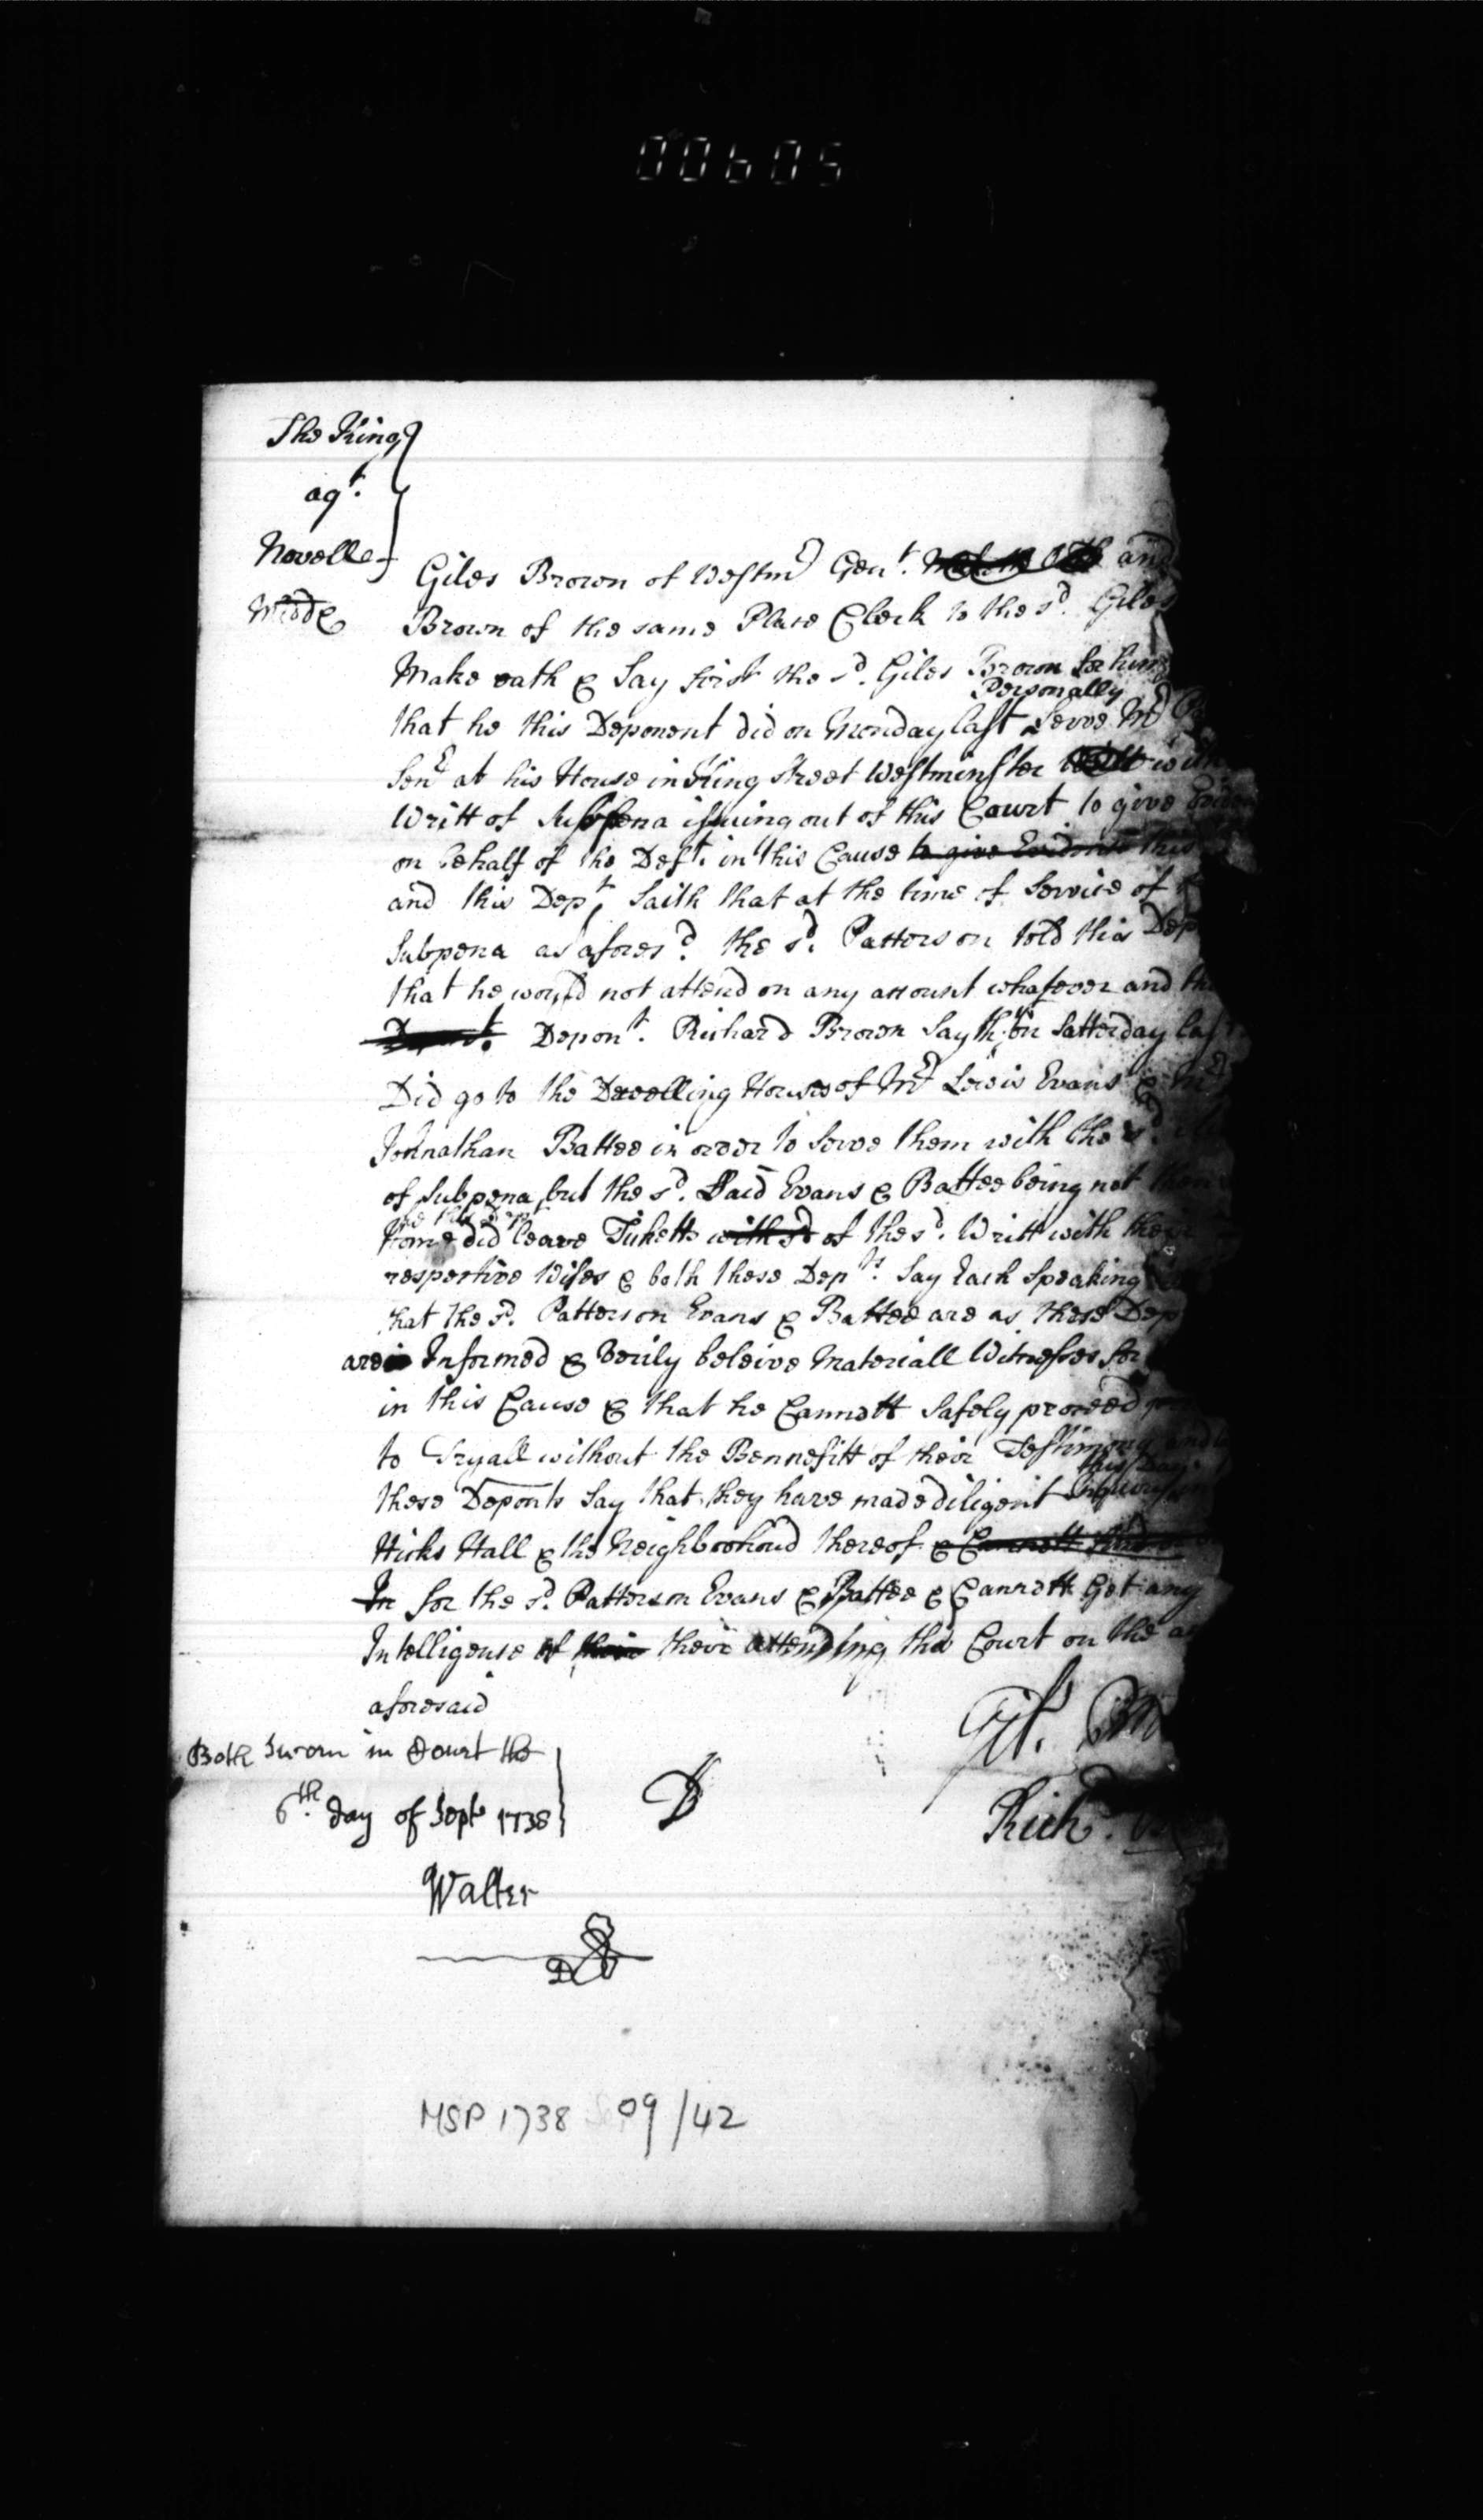 00605
The King
agt.
Novelle
Middx
Giles Brown of Westmr Gent. Maketh Oath and
Brown of the same Place Clerk to the sd. Giles
Make oath & Say first the sd. Giles Brown for him
Personally
that he this Deponent did on Monday last Serve Mr
Senr at his House in King Street Westminster with
Writt of Subpena issuing out of this Court to give
on behalf of the Deft. in this Cause to give Evidence this
and this Dept. Saith that at the time of Service of
Subpena as aforesd. the sd. Patterson told this Dep
that he would not attend on any account whatever and
Depont. Richard Brown Sayth on Satterday last
Did go to the Dwelling Houses of Mr Lewis Evans & Mr
Johnathan Battee in order to Serve them with the sd.
of Subpena but the sd. Said Evans & Battee being not
he this Dept
home did leave Ticketts with sd of the sd. Writt with their
respective Wifes & both these Depts. Say Each Speaking
that the sd. Patterson Evans & Battee are as these Dep
are Informed & Verily beleive Materiall Witnesses for
in this Cause & that he Cannott Safely proceed
to Tryall without the Bennefitt of their Testimony and
this Day
these Deponts Say that they have made diligent Inquiry
Hicks Hall & the Neighboohoud thereof & Cannott find
In for the sd. Patterson Evans & Battee & Cannott Get any
Intelligense of their their attending this Court on the
aforesaid
Both Sworn in Court the
6th. day of Sept 1738
Gil.
Richd.
Walter
MSP 1738 Sep 09/42